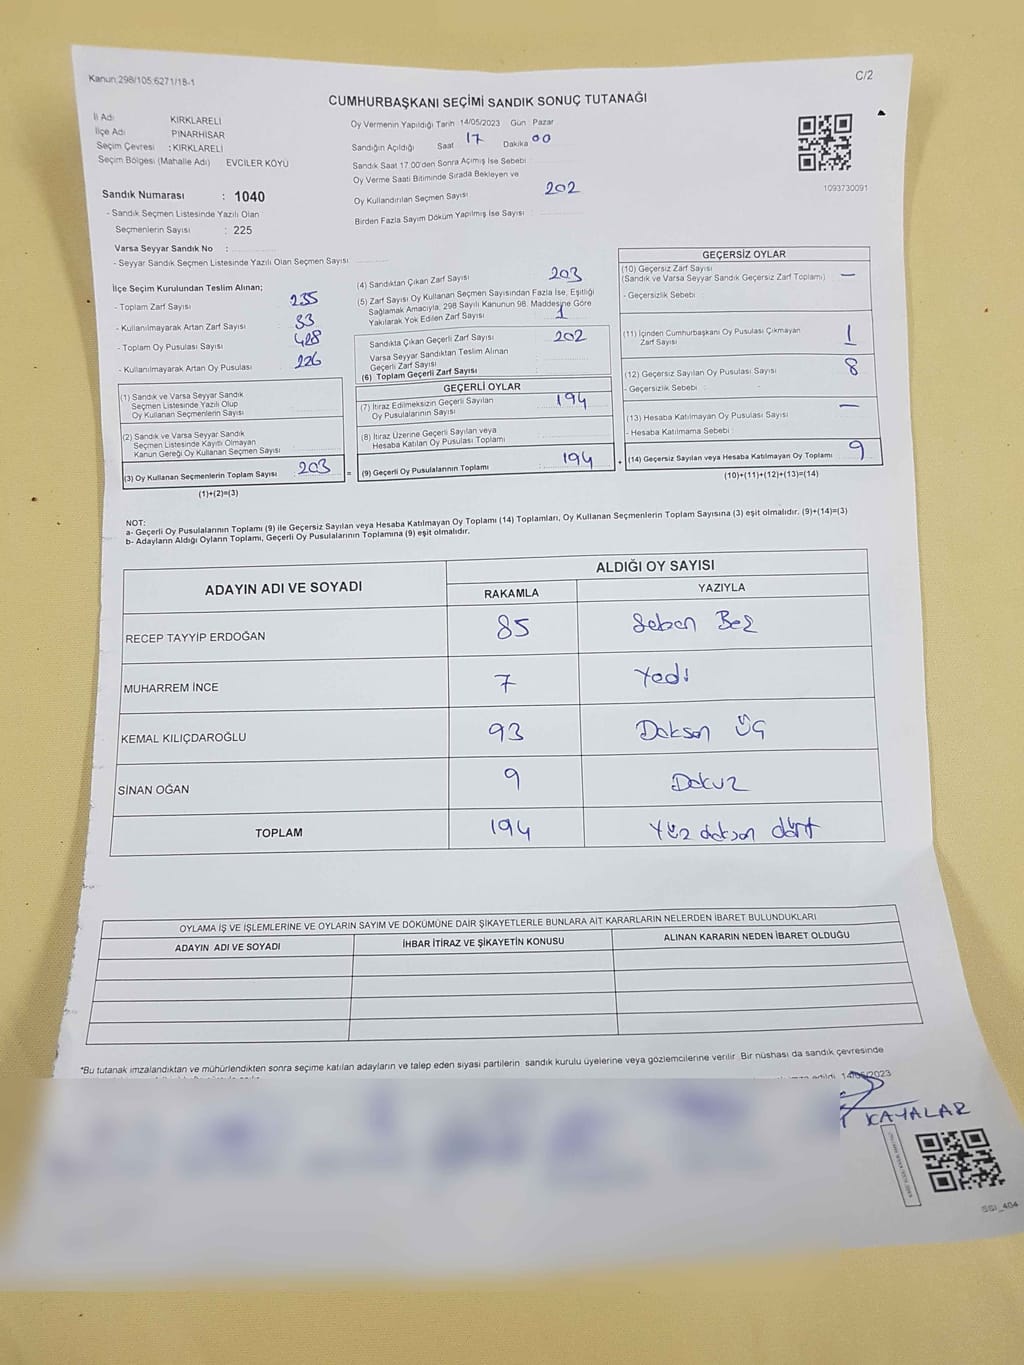 Kanun:298/105,6271/18-1
C/2
CUMHURBAŞKANI SEÇİMİ SANDIK SONUÇ TUTANAĞI
İl Adı KIRKLARELİ
İlçe Adı PINARHİSAR
Seçim Çevresi : KIRKLARELİ
Seçim Bölgesi (Mahalle Adı) EVCİLER KÖYÜ
Oy Vermenin Yapıldığı Tarih 14/05/2023 Gün : Pazar
Sandığın Açıldığı Saat 17 Dakika 00
Sandık Saat 17.00'den Sonra Açımış İse Sebebi
Oy Verme Saati Bitiminde Sırada Bekleyen ve
Oy Kullandırılan Seçmen Sayısı 202
Birden Fazla Sayım Döküm Yapılmış İse Sayısı :
1093730091
Sandık Numarası : 1040
- Sandık Seçmen Listesinde Yazılı Olan
Seçmenlerin Sayısı : 225
Varsa Seyyar Sandık No :
- Seyyar Sandık Seçmen Listesinde Yazılı Olan Seçmen Sayısı:
İlçe Seçim Kurulundan Teslim Alınan;
- Toplam Zarf Sayısı 235
- Kullanılmayarak Artan Zarf Sayısı 33
- Toplam Oy Pusulası Sayısı 428
- Kullanılmayarak Artan Oy Pusulası 226
(1) Sandık ve Varsa Seyyar Sandık
Seçmen Listesinde Yazılı Olup
Oy Kullanan Seçmenlerin Sayısı
(2) Sandık ve Varsa Seyyar Sandık
Seçmen Listesinde Kayıtlı Olmayan
Kanun Gereği Oy Kullanan Seçmen Sayısı
(3) Oy Kullanan Seçmenlerin Toplam Sayısı 203
(1)+(2)=(3)
(4) Sandıktan Çıkan Zarf Sayısı 203
(5) Zarf Sayısı Oy Kullanan Seçmen Sayısından Fazla İse, Eşitliği
Sağlamak Amacıyla, 298 Sayılı Kanunun 98. Maddesine Göre
Yakılarak Yok Edilen Zarf Sayısı 1
Sandıkta Çıkan Geçerli Zarf Sayısı 202
Varsa Seyyar Sandıktan Teslim Alınan
Geçerli Zarf Sayısı
(6) Toplam Geçerli Zarf Sayısı
GEÇERLİ OYLAR
(7) İtiraz Edilmeksizin Geçerli Sayılan
Oy Pusulalarının Sayısı 194
(8) İtiraz Üzerine Geçerli Sayılan veya
Hesaba Katılan Oy Pusulası Toplamı
= (9) Geçerli Oy Pusulalarının Toplamı 194 +
GEÇERSİZ OYLAR
(10) Geçersiz Zarf Sayısı
(Sandık ve Varsa Seyyar Sandık Geçersiz Zarf Toplamı) —
- Geçersizlik Sebebi
(11) İçinden Cumhurbaşkanı Oy Pusulası Çıkmayan
Zarf Sayısı 1
(12) Geçersiz Sayılan Oy Pusulası Sayısı 8
- Geçersizlik Sebebi :
(13) Hesaba Katılmayan Oy Pusulası Sayısı —
- Hesaba Katılmama Sebebi
(14) Geçersiz Sayılan veya Hesaba Katılmayan Oy Toplamı 9
(10)+(11)+(12)+(13)=(14)
NOT:
a- Geçerli Oy Pusulalarının Toplamı (9) ile Geçersiz Sayılan veya Hesaba Katılmayan Oy Toplamı (14) Toplamları, Oy Kullanan Seçmenlerin Toplam Sayısına (3) eşit olmalıdır. (9)+(14)=(3)
b- Adayların Aldığı Oyların Toplamı, Geçerli Oy Pusulalarının Toplamına (9) eşit olmalıdır.
ADAYIN ADI VE SOYADI ALDIĞI OY SAYISI
RAKAMLA YAZIYLA
RECEP TAYYİP ERDOĞAN 85 Seben Beş
MUHARREM İNCE 7 Yedi
KEMAL KILIÇDAROĞLU 93 Doksan üç
SİNAN OĞAN 9 Dokuz
TOPLAM 194 Yüz doksan dört
OYLAMA İŞ VE İŞLEMLERİNE VE OYLARIN SAYIM VE DÖKÜMÜNE DAİR ŞİKAYETLERLE BUNLARA AİT KARARLARIN NELERDEN İBARET BULUNDUKLARI
ADAYIN ADI VE SOYADI İHBAR İTİRAZ VE ŞİKAYETİN KONUSU ALINAN KARARIN NEDEN İBARET OLDUĞU
*Bu tutanak imzalandıktan ve mühürlendikten sonra seçime katılan adayların ve talep eden siyasi partilerin sandık kurulu üyelerine veya gözlemcilerine verilir. Bir nüshası da sandık çevresinde
14/05/2023
KAYALAR
SSI_404